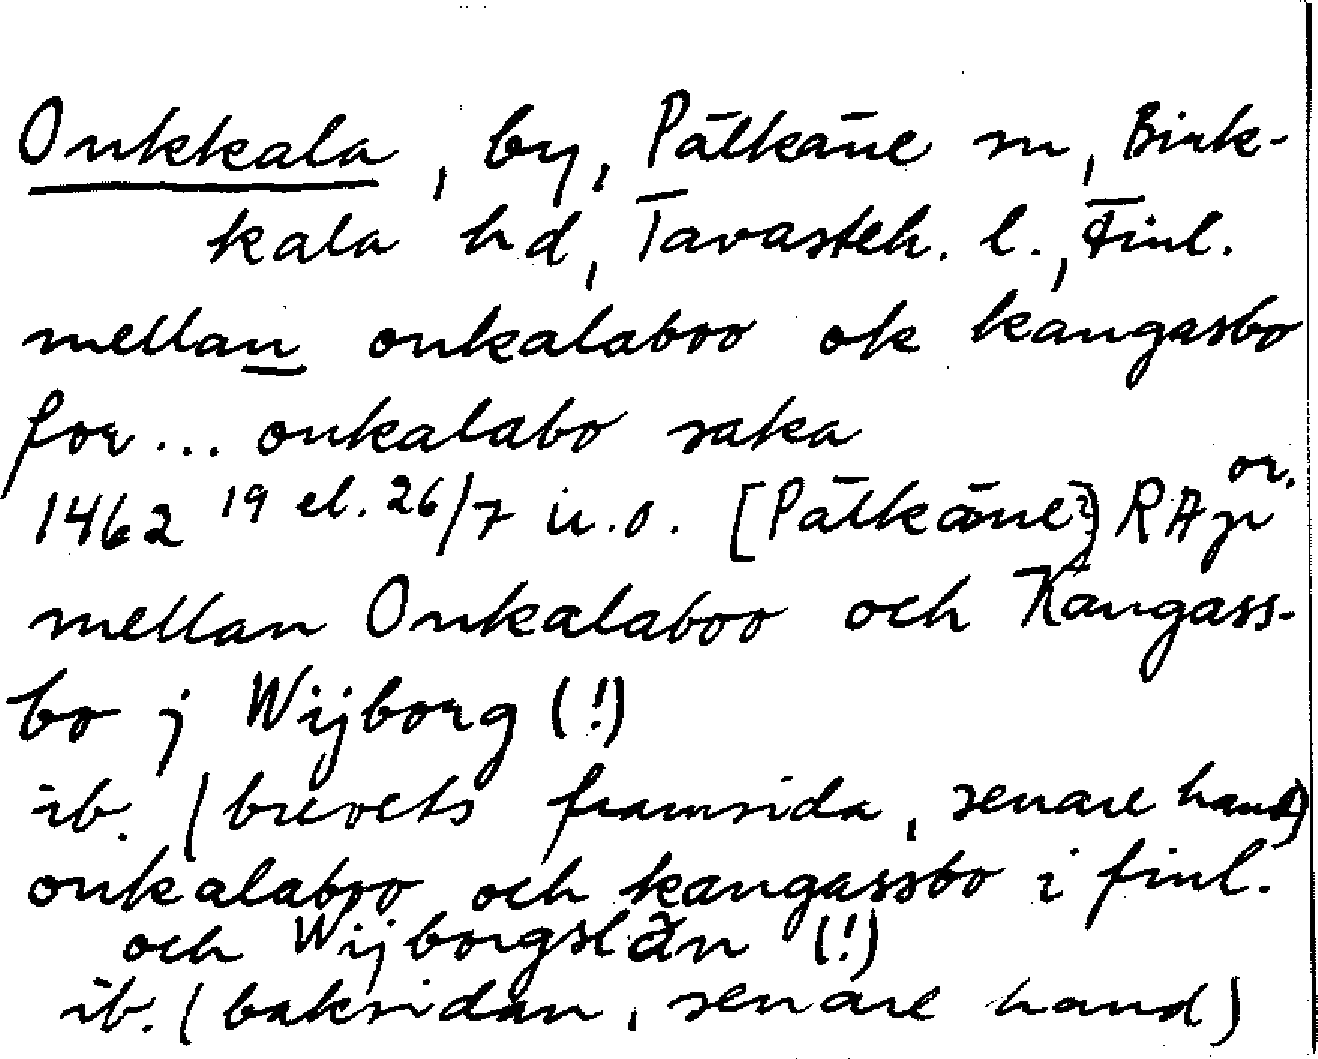 Onkkala, by, Pälkäne sn, Birk-
kala hd, Tavasteh. l., Finl.
mellan onkalaboo ok kangasbo
for... onkalabo saka
1462 19 el. 26/7 u.o. [Pälkäne?] RAp or.
mellan Onkalaboo och Kangass-
bo j Wijborg (!)
ib. (brevets framsida, senare hand)
onkalaboo och kangassbo i finl.
och Wijborgslän (!)
ib. (baksidan, senare hand)